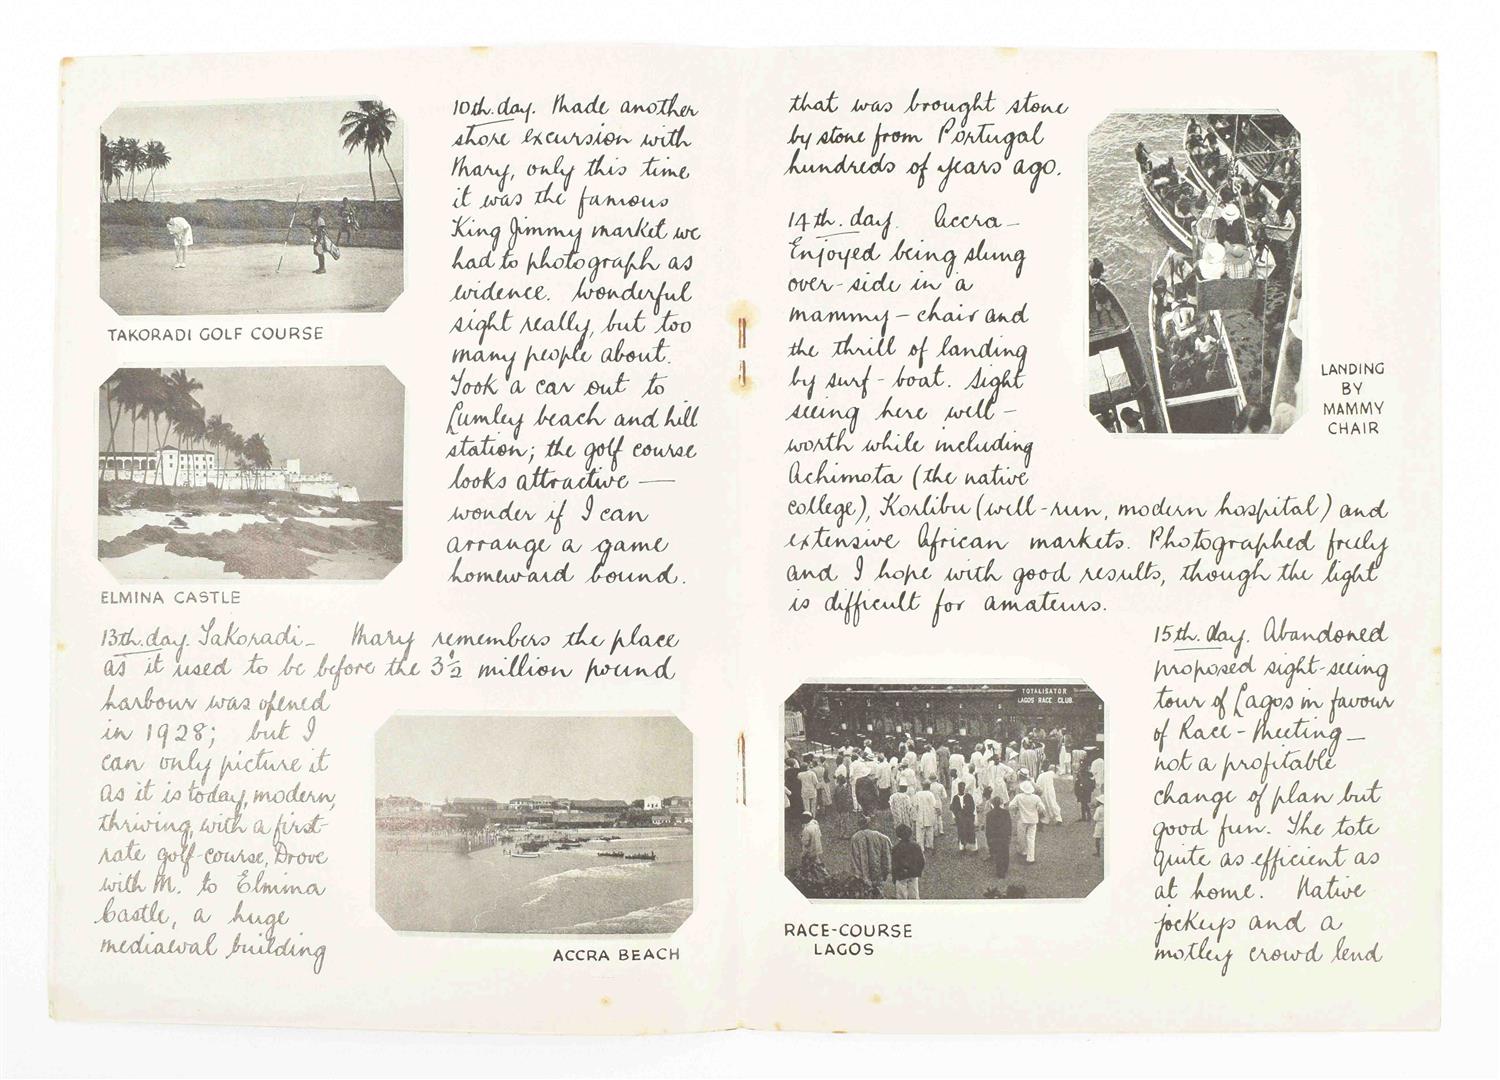 10th. day. Made another
shore excursion with
Mary, only this time
it was the famous
King Jimmy market we
had to photograph as
evidence. Wonderful
sight really, but too
many people about.
Took a car out to
Lumley beach and hill
station; the golf course
looks attractive —
wonder if I can
arrange a game
homeward bound.
TAKORADI GOLF COURSE
ELMINA CASTLE
13th. day. Takoradi — Mary remembers the place
as it used to be before the 3½ million pound
harbour was opened
in 1928; but I
can only picture it
as it is today, modern,
thriving, with a first-
rate golf-course, Drove
with M. to Elmina
Castle, a huge
mediaeval building
ACCRA BEACH
that was brought stone
by stone from Portugal
hundreds of years ago.
14th. day. Accra —
Enjoyed being slung
over-side in a
mammy-chair and
the thrill of landing
by surf-boat. Sight
seeing here well-
worth while including
Achimota (the native
college), Korlibu (well-run, modern hospital) and
extensive African markets. Photographed freely
and I hope with good results, though the light
is difficult for amateurs.
LANDING
BY
MAMMY
CHAIR
15th. day. Abandoned
proposed sight-seeing
tour of Lagos in favour
of Race-Meeting —
not a profitable
change of plan but
good fun. The tote
quite as efficient as
at home. Native
jockeys and a
motley crowd lend
TOTALISATOR
LAGOS RACE CLUB.
RACE-COURSE
LAGOS